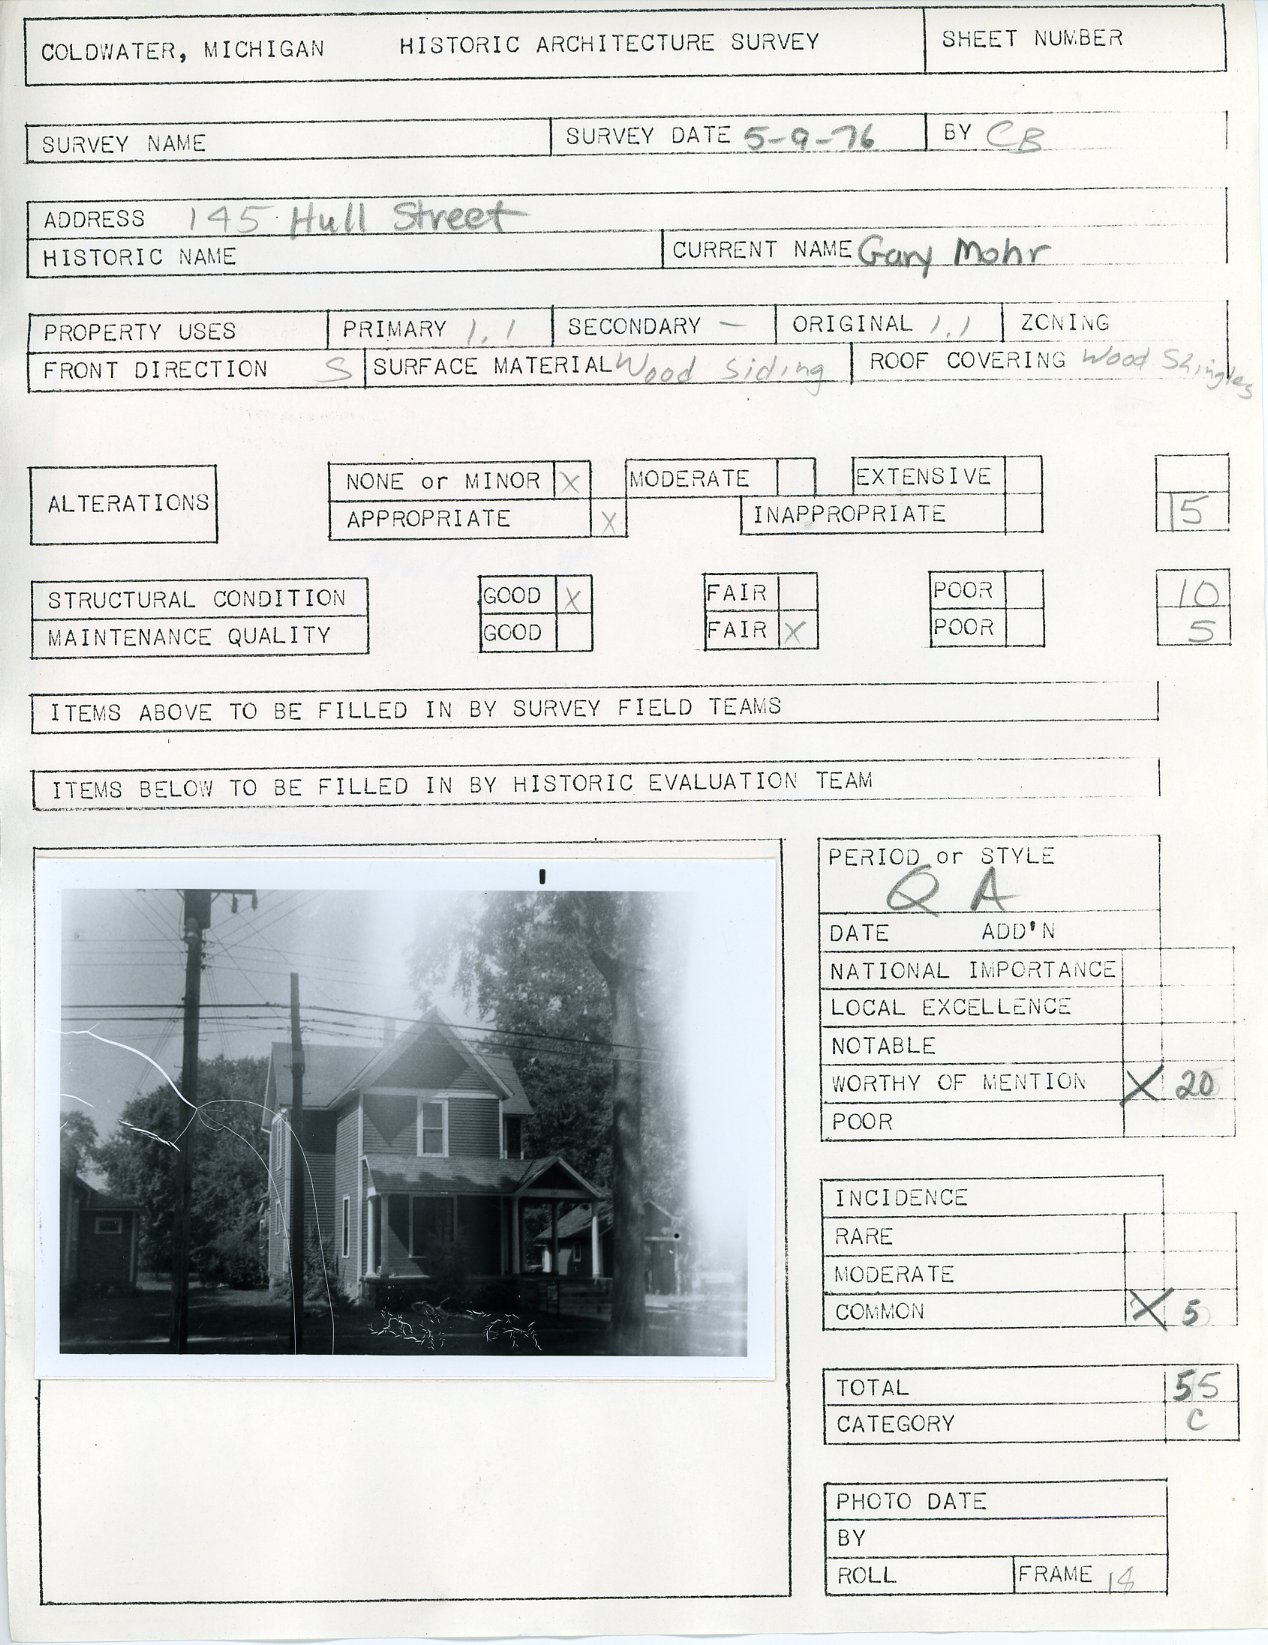 COLDWATER, MICHIGAN HISTORIC ARCHITECTURE SURVEY SHEET NUMBER
SURVEY NAME SURVEY DATE 5-9-76 BY CB
ADDRESS 145 Hull Street
HISTORIC NAME CURRENT NAME Gary Mohr
PROPERTY USES PRIMARY 1.1 SECONDARY — ORIGINAL 1.1 ZONING
FRONT DIRECTION S SURFACE MATERIAL Wood Siding ROOF COVERING Wood Shingles
ALTERATIONS NONE or MINOR X MODERATE EXTENSIVE
APPROPRIATE X INAPPROPRIATE 15
STRUCTURAL CONDITION GOOD X FAIR POOR 10
MAINTENANCE QUALITY GOOD FAIR X POOR 5
ITEMS ABOVE TO BE FILLED IN BY SURVEY FIELD TEAMS
ITEMS BELOW TO BE FILLED IN BY HISTORIC EVALUATION TEAM
PERIOD or STYLE
Q A
DATE ADD'N
NATIONAL IMPORTANCE
LOCAL EXCELLENCE
NOTABLE
WORTHY OF MENTION X 20
POOR
INCIDENCE
RARE
MODERATE
COMMON X 5
TOTAL 55
CATEGORY C
PHOTO DATE
BY
ROLL FRAME 18